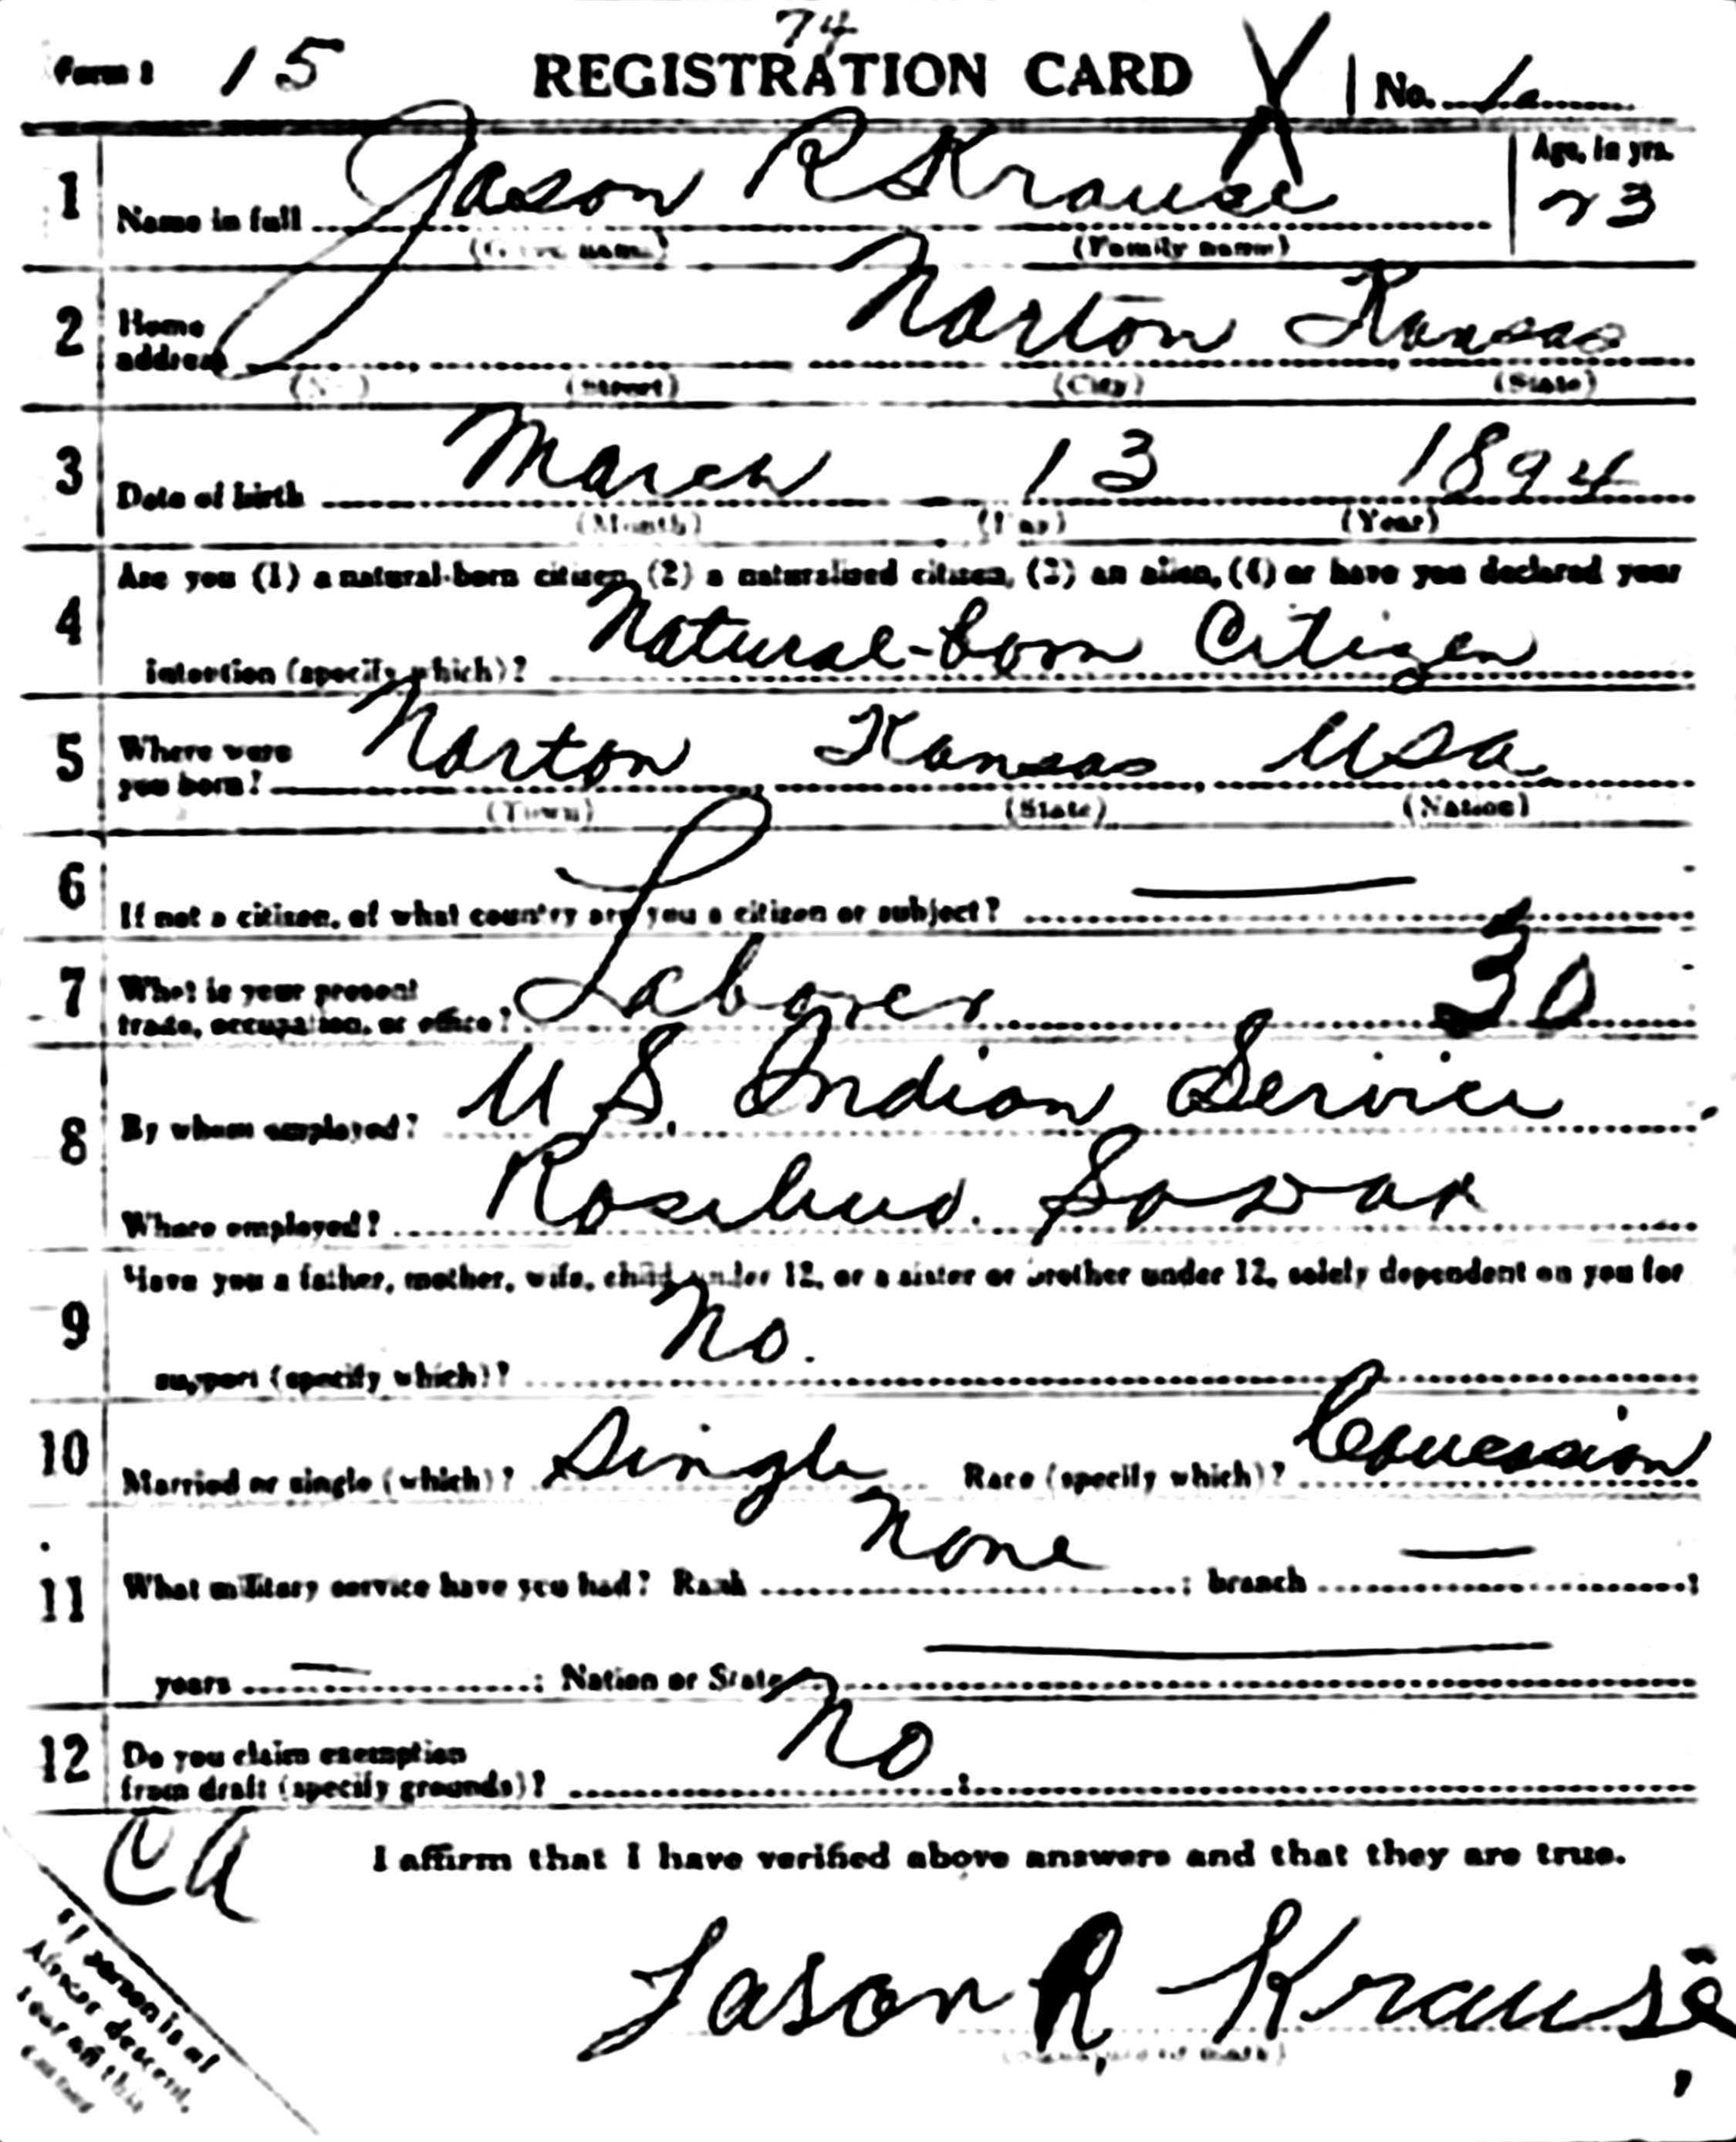 74
Form 1 15 REGISTRATION CARD No. 
1 Name in full Jason R Krause Age, in yrs. 23
(Given name) (Family name)
2 Home address Norton Kansas
(No.) (Street) (City) (State)
3 Date of birth March 13 1894
(Month) (Day) (Year)
Are you (1) a natural-born citizen, (2) a naturalized citizen, (3) an alien, (4) or have you declared your
4 intention (specify which)? Natural-born Citizen
5 Where were you born? Norton Kansas USA
(Town) (State) (Nation)
6 If not a citizen, of what country are you a citizen or subject? —
7 What is your present trade, occupation, or office? Laborer 30
8 By whom employed? U.S. Indian Service
Where employed? Rosebud. So Dak
Have you a father, mother, wife, child under 12, or a sister or brother under 12, solely dependent on you for
9 support (specify which)? No.
10 Married or single (which)? Single Race (specify which)? Coucasian
11 What military service have you had? Rank None ; branch — ;
years — ; Nation or State —
12 Do you claim exemption from draft (specify grounds)? No
CA
I affirm that I have verified above answers and that they are true.
Jason R Krause
If person is of
African descent,
tear off this
corner